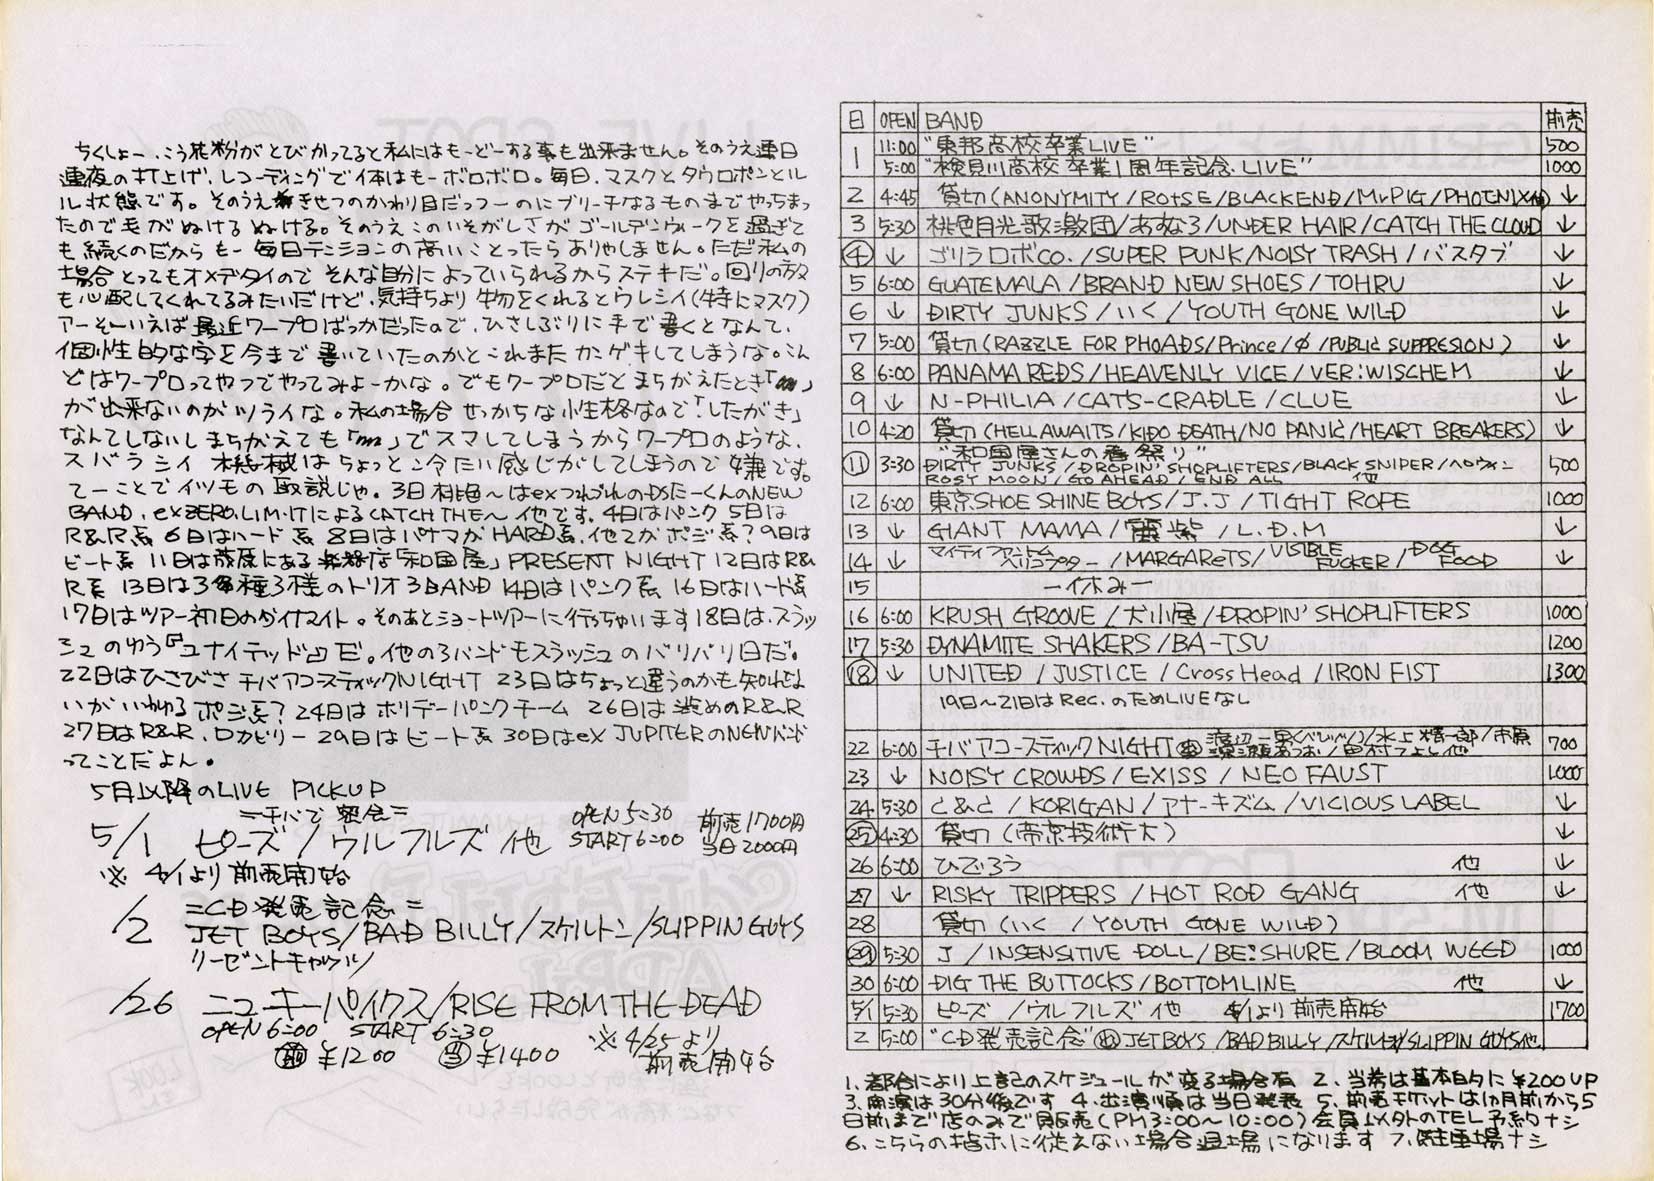 ちくしょー、こう花粉がとびかってると私にはもーどーする事も出来ません。そのうえ連日
連夜の打上げ、レコーディングで体はもーボロボロ。毎日、マスクとタウロポンとル
ル状態です。そのうえきせつのかわり目だっつーのにブリーチなるものまでやっちまっ
たので毛がぬけるぬける。そのうえこのいそがしさがゴールデンウィークを過ぎて
も続くのだからもー毎日テンションの高いことったらありゃしません。ただ私の
場合とってもオメデタイのでそんな自分によっていられるからステキだ。回りの方
も心配してくれてるみたいだけど、気持ちより物をくれるとウレシイ(特にマスク)
アーそーいえば最近ワープロばっかだったので、ひさしぶりに手で書くとなんて、
個性的な字を今まで書いていたのかとこれまたカンゲキしてしまうな。こん
どはワープロってやつでやってみよーかな。でもワープロだとまちがえたとき「
が出来ないのがツライな。私の場合せっかちな性格なので「したがき」
なんてしないしまちがえても「 」でスマしてしまうからワープロのような、
スバラシイ機械はちょっと冷たい感じがしてしまうので嫌です。
てーことでイツモの取説じゃ。3日桃色〜はexつれづれのDSたーくんのNEW
BAND、exZERO.LIM.ITによるCATCH THE〜他です。4日はパンク 5日は
R&R系 6日はハード系 8日はパナマがHARD系、他2がポジ系?9日は
ビート系 11日は茂原にある楽器店「和国屋」PRESENT NIGHT 12日はR&
R系 13日は3種3様のトリオ3BAND 14日はパンク系 16日はハード系
17日はツアー初日のダイナマイト。そのあとショートツアーに行っちゃいます18日は、スラッ
シュのゆう『ユナイテッド』だ。他の3バンドもスラッシュのバリバリ日だ。
22日はひさびさチバアコースティックNIGHT 23日はちょっと違うのかも知れな
いがいわゆるポジ系?24日はホリデーパンクチーム 26日は渋めのR&R
27日はR&R、ロカビリー 29日はビート系 30日はex JUPITERのNEWバンド
ってことだよん。
5月以降のLIVE PICKUP
=チバで宴会=
5/1 ピーズ/ウルフルズ 他 OPEN 5:30 START 6:00 前売1700円 当日2000円
※ 4/1より前売開始
=CD発売記念=
/2 JET BOYS/BAD BILLY/スケルトン/SLIPPIN GUYS
リーゼントキャバクル
/26 ニューキーパイクス/RISE FROM THE DEAD
OPEN 6:00 START 6:30 ※ 4/25より
前 ¥1200 当 ¥1400 前売開始
日 OPEN BAND 前売
1 11:00 "東邦高校卒業LIVE" 500
5:00 "検見川高校卒業1周年記念LIVE" 1000
2 4:45 貸切(ANONYMITY/ROtSE/BLACKEND/Mr.PIG/PHOENIX他) ↓
3 5:30 桃色月光歌激団/あすなろ/UNDER HAIR/CATCH THE CLOUD ↓
④ ↓ ゴリラロボCO./SUPER PUNK/NOISY TRASH/バスタブ ↓
5 6:00 GUATEMALA/BRAND NEW SHOES/TOHRU ↓
6 ↓ DIRTY JUNKS/いく/YOUTH GONE WILD ↓
7 5:00 貸切(RAZZLE FOR PHOADS/Prince/Φ/PUBLIC SUPPRESION) ↓
8 6:00 PANAMA REDS/HEAVENLY VICE/VER:WISCHEM ↓
9 ↓ N-PHILIA/CAT'S-CRADLE/CLUE ↓
10 4:20 貸切(HELL AWAITS/KIDO DEATH/NO PANIC/HEART BREAKERS) ↓
⑪ 3:30 "和国屋さんの春祭り" 500
DIRTY JUNKS/DROPIN' SHOPLIFTERS/BLACK SNIPER/ハロウィン
ROSY MOON/GO AHEAD/END ALL 他
12 6:00 東京SHOE SHINE BOYS/J.J/TIGHT ROPE 1000
13 ↓ GIANT MAMA/霊紫/L.D.M ↓
14 ↓ マイティファントムヘリコプター/MARGAReTS/VISIBLE FUCKER/DOG FOOD ↓
15 ー休みー
16 6:00 KRUSH GROOVE/犬小屋/DROPIN' SHOPLIFTERS 1000
17 5:30 DYNAMITE SHAKERS/BA-TSU 1200
⑱ ↓ UNITED/JUSTICE/Cross Head/IRON FIST 1300
19日〜21日はRec.のためLIVEなし
22 6:00 チバアコースティックNIGHT 出 渡辺一臭(べいべい)/水上精一郎/市原 瀬あつお/田村つよし他 700
23 ↓ NOISY CROWDS/EXISS/NEO FAUST 1000
24 5:30 C&C/KORIGAN/アナーキズム/VICIOUS LABEL ↓
㉕ 4:30 貸切(帝京技術大) ↓
26 6:00 ひでろう 他 ↓
27 ↓ RISKY TRIPPERS/HOT ROD GANG 他 ↓
28 貸切(いく/YOUTH GONE WILD)
㉙ 5:30 J/INSENSITIVE DOLL/BE:SHURE/BLOOM WEED 1000
30 6:00 DIG THE BUTTOCKS/BOTTOMLINE 他 ↓
5/1 5:30 ピーズ/ウルフルズ 他 4/1より前売開始 1700
2 5:00 "CD発売記念" 出 JET BOYS/BAD BILLY/スケルトン/SLIPPIN GUYS他
1、都合により上記のスケジュールが変る場合有 2、当券は基本的に¥200UP
3、開演は30分後です 4、出演順は当日発表 5、前売チケットは1カ月前から5
日前まで店のみで販売(PM3:00〜10:00)会員以外のTEL予約ナシ
6、こちらの指示に従えない場合退場になります 7、駐車場ナシ